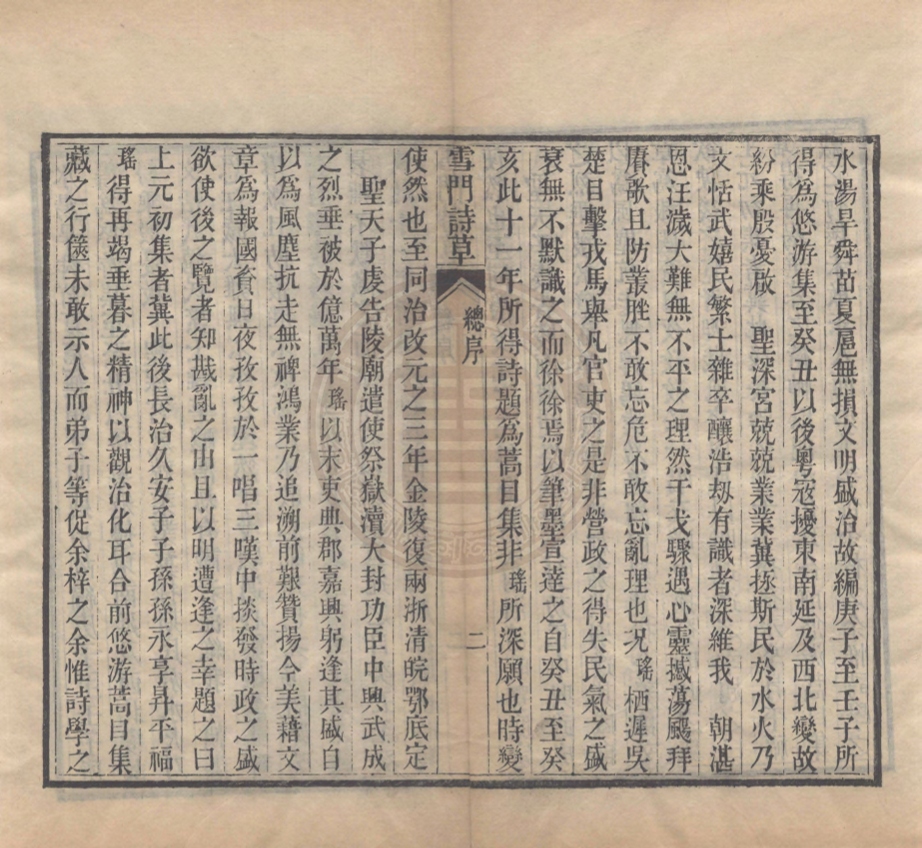 水湯旱舜苗夏扈無損文明盛治故編庚子至壬子所
得為悠游集至癸丑以後粵寇擾東南延及西北變故
紛乘殷憂啟　聖深宮兢兢業業冀拯斯民於水火乃
文恬武嬉民繁士雜卒釀浩刼有識者深維我　朝湛
恩汪濊大難無不平之理然干戈驟遇心靈撼蕩颺拜
賡歌且防叢脞不敢忘危不敢忘亂理也况瑤栖遲吳
楚目擊戎馬舉凡官吏之是非營政之得失民氣之盛
衰無不默識之而徐徐焉以筆墨宣達之自癸丑至癸
亥此十一年所得詩題為蒿目集非瑤所深願也時變
雪門詩草　總序　二
使然也至同治改元之三年金陵復兩浙清皖鄂底定
聖天子虔告陵廟遣使祭嶽瀆大封功臣中興武成
之烈垂被於億萬年瑤以末吏典郡嘉興躬逢其盛自
以為風塵抗走無裨鴻業乃追溯前艱贊揚今美藉文
章為報國資日夜孜孜於一唱三嘆中掞發時政之盛
欲使後之覽者知戡亂之由且以明遭逢之幸題之曰
上元初集者冀此後長治久安子子孫孫永享昇平福
瑤得再竭垂暮之精神以觀治化耳合前悠游蒿目集
藏之行篋未敢示人而弟子等促余梓之余惟詩學之